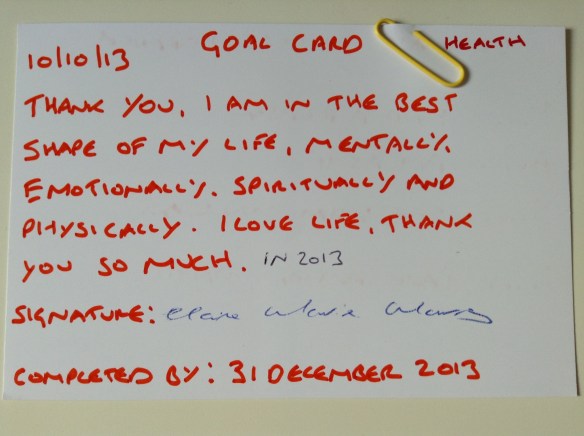 10/10/13 GOAL CARD HEALTH
THANK YOU, I AM IN THE BEST
SHAPE OF MY LIFE, MENTALLY,
EMOTIONALLY, SPIRITUALLY AND
PHYSICALLY. I LOVE LIFE, THANK
YOU SO MUCH. IN 2013
SIGNATURE: Claire Marie
COMPLETED BY: 31 DECEMBER 2013